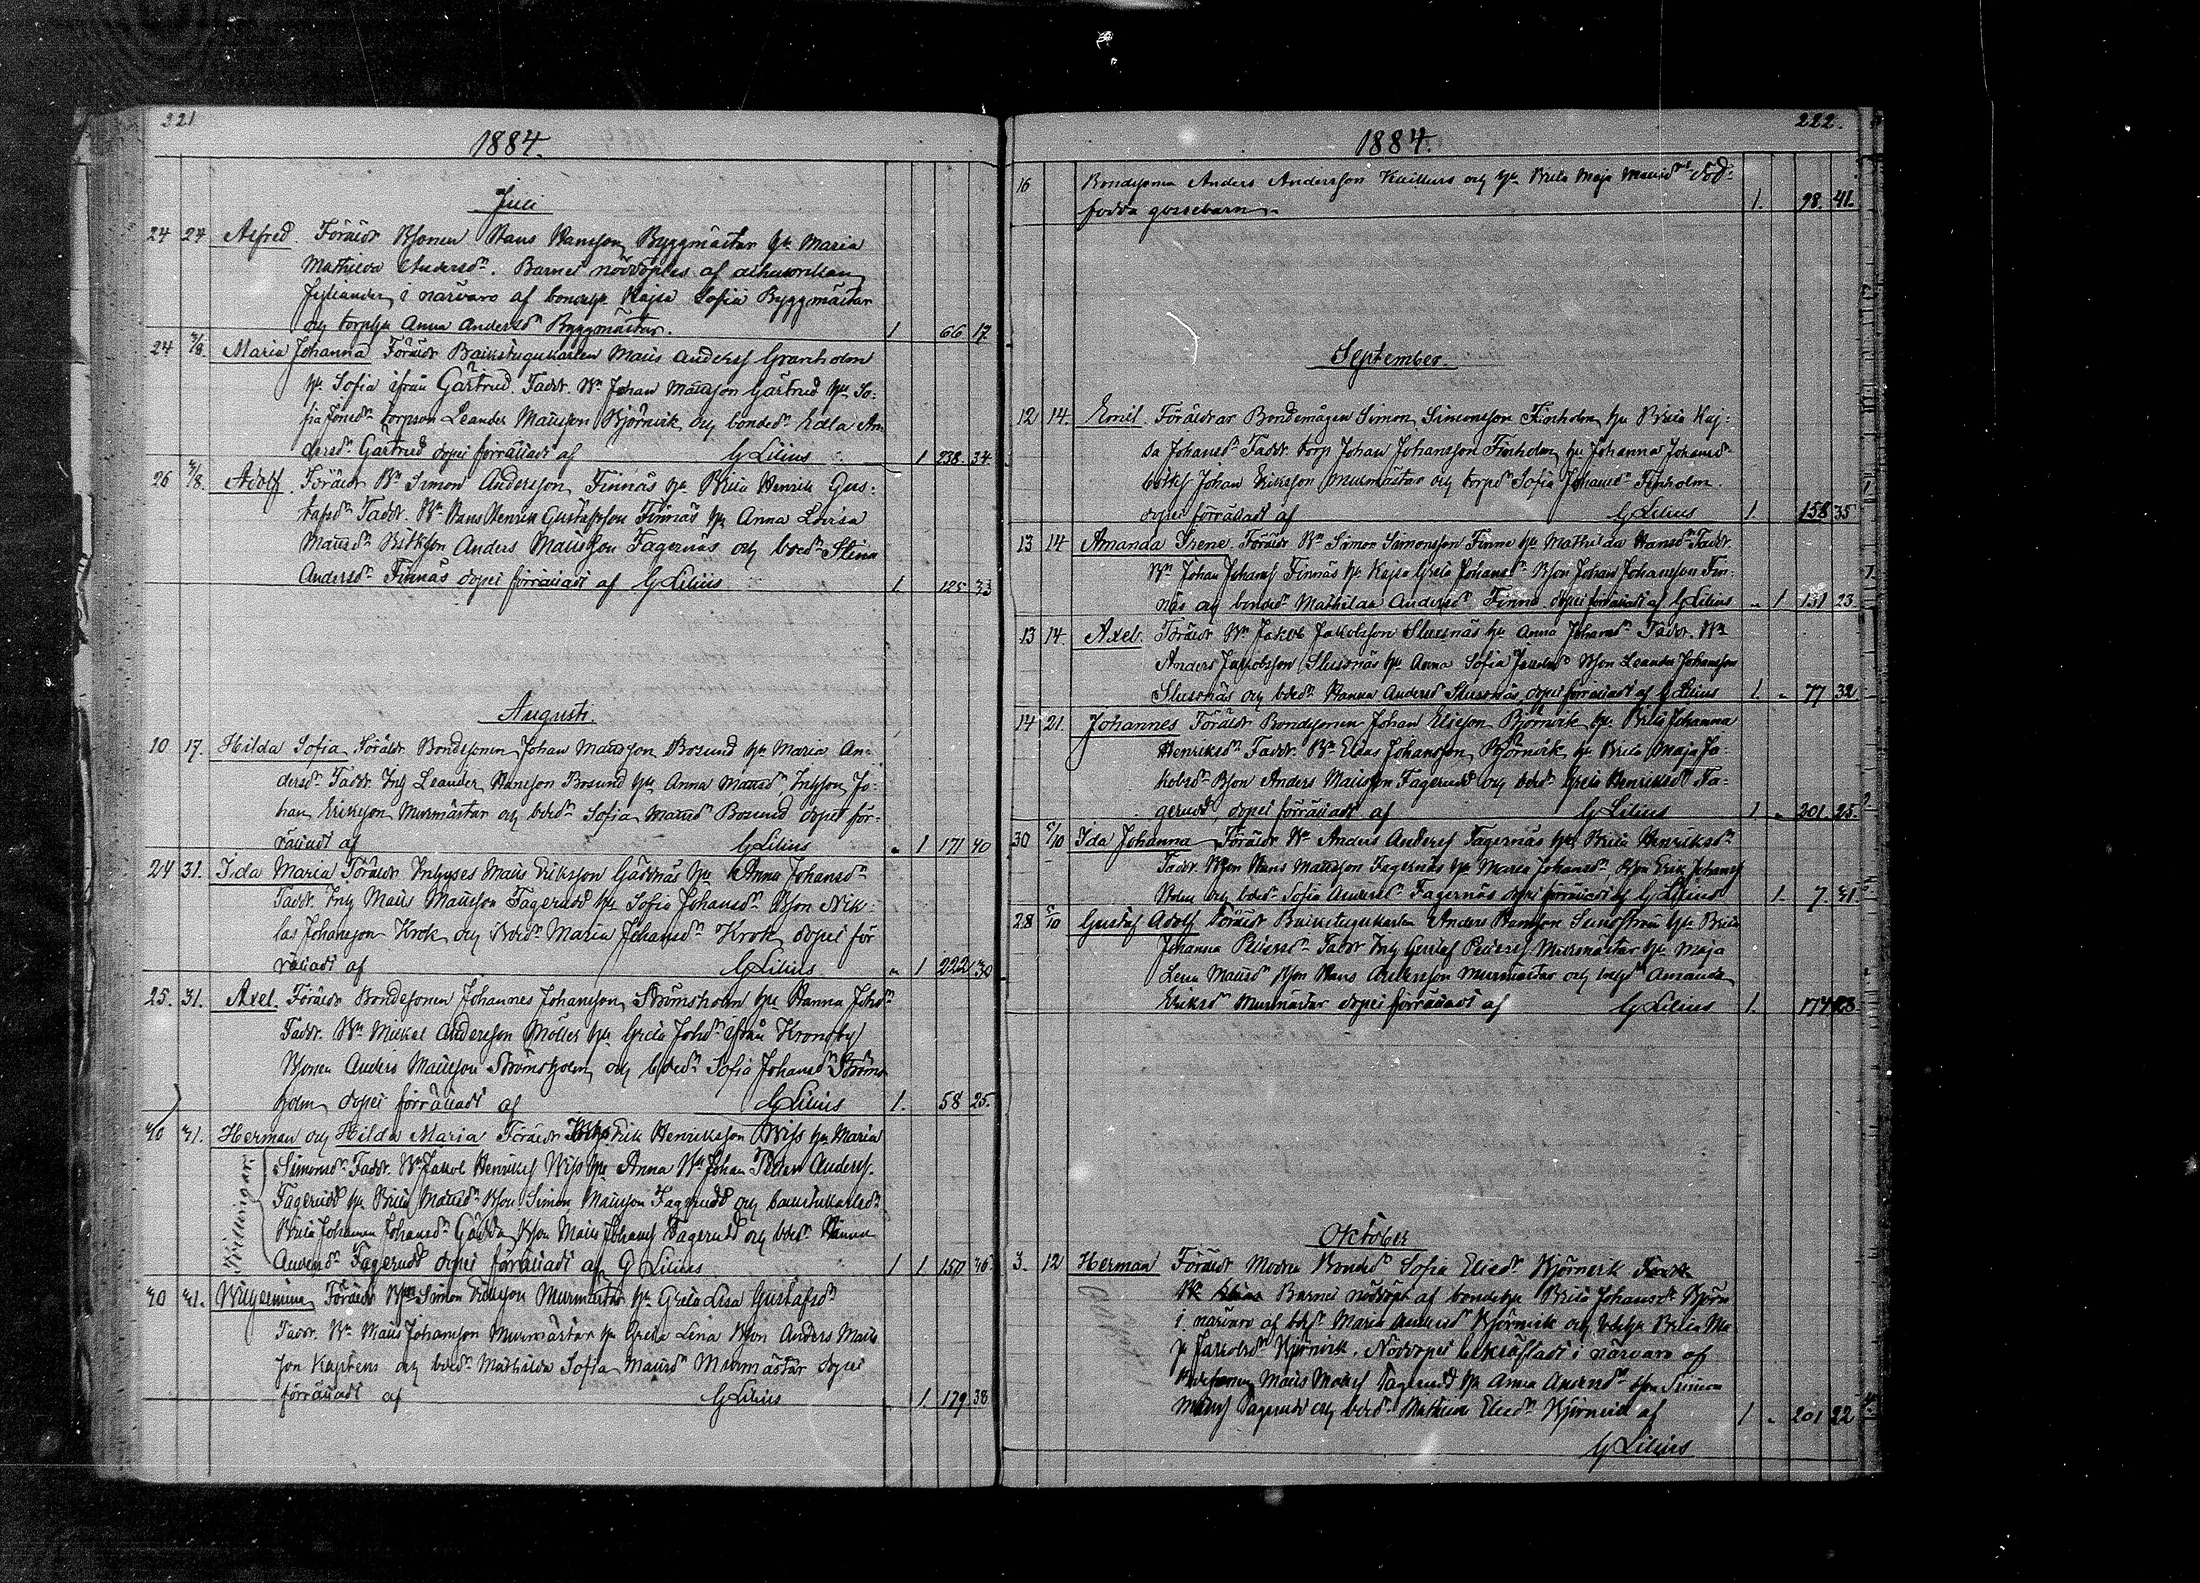 221
1884.
Juli
24 24 Alfred. Föräldr Bsonen Hans Hansson Byggmästar hu Maria
Mathilda Andersdr. Barnet nöddöptes af
i närvaro af bondehu Kajsa Sofia Byggmästar
och torphu Anna Andersdr Byggmästar. 1 66 17
24 3/8 Maria Johanna Föräldr Backstugukarlen Matts Anderss Granholm
hu Sofia ifrån Gärtrud. Faddr. Bn Johan Mattsson Gärtrud hu So-
fia Jonsdr torpson Leander Mattsson Björnvik och bonded. Edla An-
dersdr Gärtrud dopet förrättadt af G Lilius 1 238. 34.
26 3/8. Adolf. Föräldr Bn Simon Andersson Finnäs hu Brita Henrik Gus-
tafsdr Faddr. Bn Hans Henrik Gustafsson Finnäs hu Anna Lovisa
Mattsdr Anders Mattsson Fagernäs och bded. Stina
Andersdr Finnäs dopet förrättadt af G Lilius 1. 125 33
Augusti.
10 17. Hilda Sofia Föräldr. Bondesonen Johan Mattsson Bosund hu Maria An-
dersdr. Faddr. Inh Leander Hansson Bosund hu Anna Mattsdr, Inhson Jo-
han Eriksson Murmästar och bded. Sofia Mattsdr Bosund dopet för-
rättadt af G Lilius " 1 171 40
24 31. Ida Maria Föräldr Inhyses Matts Eriksson Gäddnäs hu Anna Johansdr
Faddr. Inh Matts Mattsson Fagerudd hu Sofia Johansdr. Bson Nik-
las Johansson Krok och Bded. Maria Johansdr Krok dopet för
rättadt af G Lilius " 1 222 30
25. 31. Axel. Föräldr Bondesonen Johannes Johansson Strömsholm hu Hanna Johdr
Faddr. Bn Mickel Andersson Möller hu Greta Johdr ifrån Kronoby
Bsonen Anders Mattsson Strömsholm och bded. Sofia Johansdr Ströms
holm dopet förrättadt af G Lilius 1. 58 25.
30 31. Herman och Hilda Maria Föräldr Erik Henriksson Wiss hu Maria
Tvillingar.
Simonsdr. Faddr. Bn Jakob Henrikss Wiss hu Anna Bn Johan Peter Anderss.
Fagerudd hu Brita Mattsdr Bson Simon Mattsson Fagerudd och
Brita Johanna Johansdr Gädda Bson Matts Johanss Fagerudd och bded. Hanna
Andersdr Fagerudd dopet förrättadt af G Lilius 1 1. 150 36.
30 31. Wilhelmina Föräldr Bson Simon Eriksson Murmästar hu Greta Lisa Gustafsdr
Faddr. Bn Matts Johansson Murmästar hu Greta Lina Bson Anders Matts
son Kaptens och bded. Mathilda Sofia Mattsdr Murmästar dopet
förrättadt af G Lilius " 1. 179 38
222.
1884.
16 Bondesonen Anders Andersson Knillus och hu Brita Maja Mattsdr död-
födda gossebarn. 1. 98. 41.
September.
12 14. Emil. Föräldrar Bondemågen Simon Simonsson Finholm hu Brita Kaj-
sa Johansdr Faddr. torp Johan Johansson Finholm hu Johanna Johansdr
Johan Eriksson Murmästar och torpdr Sofia Johansdr Finholm.
dopet förrättadt af G Lilius 1. 158 35
13 14 Amanda Irene Föräldr Bn Simon Simonsson Finne hu Mathilda Hansdr Faddr.
Bn Johan Johanss Finnäs hu Kajsa Greta Johansdr Bson Johan Johansson Fin-
näs och bonded. Mathilda Andersdr Finne dopet förrättadt af G Lilius " 1 131 23
13 14. Axel. Föräldr Bn Jakob Jakobsson Slussnäs hu Anna Johansdr Faddr. Bn
Anders Jakobsson Slussnäs hu Anna Sofia Jakobsdr Bson Leander Johansson
Slussnäs och bded. Hanna Andersdr Slussnäs dopet förrättadt af G Lilius 1. " 77 32
14 21. Johannes Föräldr Bondesonen Johan Eliesson Björnvik hu Brita Johanna
Henriksdr. Faddr. Bn Elias Johansson Björnvik hu Brita Maja Ja-
kobsdr Bson Anders Mattsson Fagerudd och bded. Greta Henriksdr Fa-
gerudd, dopet förrättadt af G Lilius 1 " 201. 25.
30 5/10 Ida Johanna Föräldr Bn Anders Anderss Fagernäs hu Brita Henriksdr
Faddr. Bson Hans Mattsson Fagernäs hu Maria Johansdr Bson Erik Johanss
och bded. Sofia Andersdr Fagernäs dopet förrättadt af G Lilius 1. 7. 31
28 5/10 Gustaf Adolf Föräldr Backstugukarlen Anders Hansson Sundström hu Brita
Johanna Petersdr. Faddr Inh Gustaf Peterss Murmästar hu Maja
Lena Mattsdr Bson Hans Andersson Murmästar och inhdr Amanda
Eriksdr Murmästar dopet förrättadt af G Lilius 1. 174
Oktober
3. 12 Herman Föräldr Modren Bonded. Sofia Eliedr Björnvik
Barnet nöddöpt af bondehu Brita Johansdr Björn
i närvaro af Maria Andersdr Björnvik och bdehu Brita Ma
ja Jakobsdr Björnvik. Nöddopet bekräftadt i närvaro af
Matts Matts Fagerudd hu Anna Andersdr Bson Simon
Matts Fagerudd och bded. Mathilda Eliedr Björnvik af 1 " 201 22
G Lilius